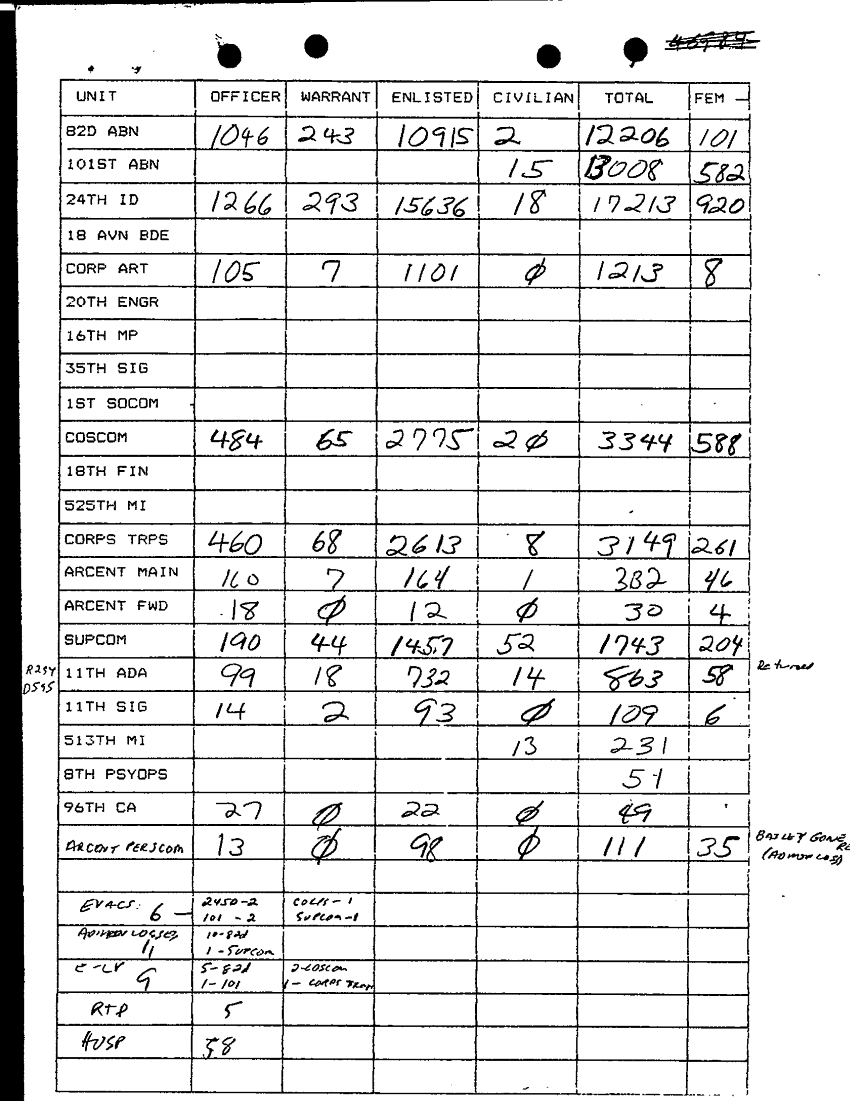 46984
UNIT OFFICER WARRANT ENLISTED CIVILIAN TOTAL FEM -
82D ABN 1046 243 10915 2 12206 101
101ST ABN 15 13008 582
24TH ID 1266 293 15636 18 17213 920
18 AVN BDE
CORP ART 105 7 1101 φ 1213 8
20TH ENGR
16TH MP
35TH SIG
1ST SOCOM
COSCOM 484 65 2775 2φ 3344 588
18TH FIN
525TH MI
CORPS TRPS 460 68 2613 8 3149 261
ARCENT MAIN 160 7 164 1 332 46
ARCENT FWD 18 φ 12 φ 30 4
SUPCOM 190 44 1457 52 1743 204
R254 11TH ADA 99 18 732 14 863 58 Returned
D595
11TH SIG 14 2 93 φ 109 6
513TH MI 13 231
8TH PSYOPS 51
96TH CA 27 φ 22 φ 49
ARCENT PERSCOM 13 φ 98 φ 111 35
(ADMIN LOSS)
EVACS: 6 - 2450-2 CORPS-1
101 - 2 SUPCOM-1
ADMIN LOSSES 10-82d
11 1-SUPCOM
E-LV 5-82d 2-COSCOM
9 1-101 1- CORPS TROP
RTD 5
HOSP 58